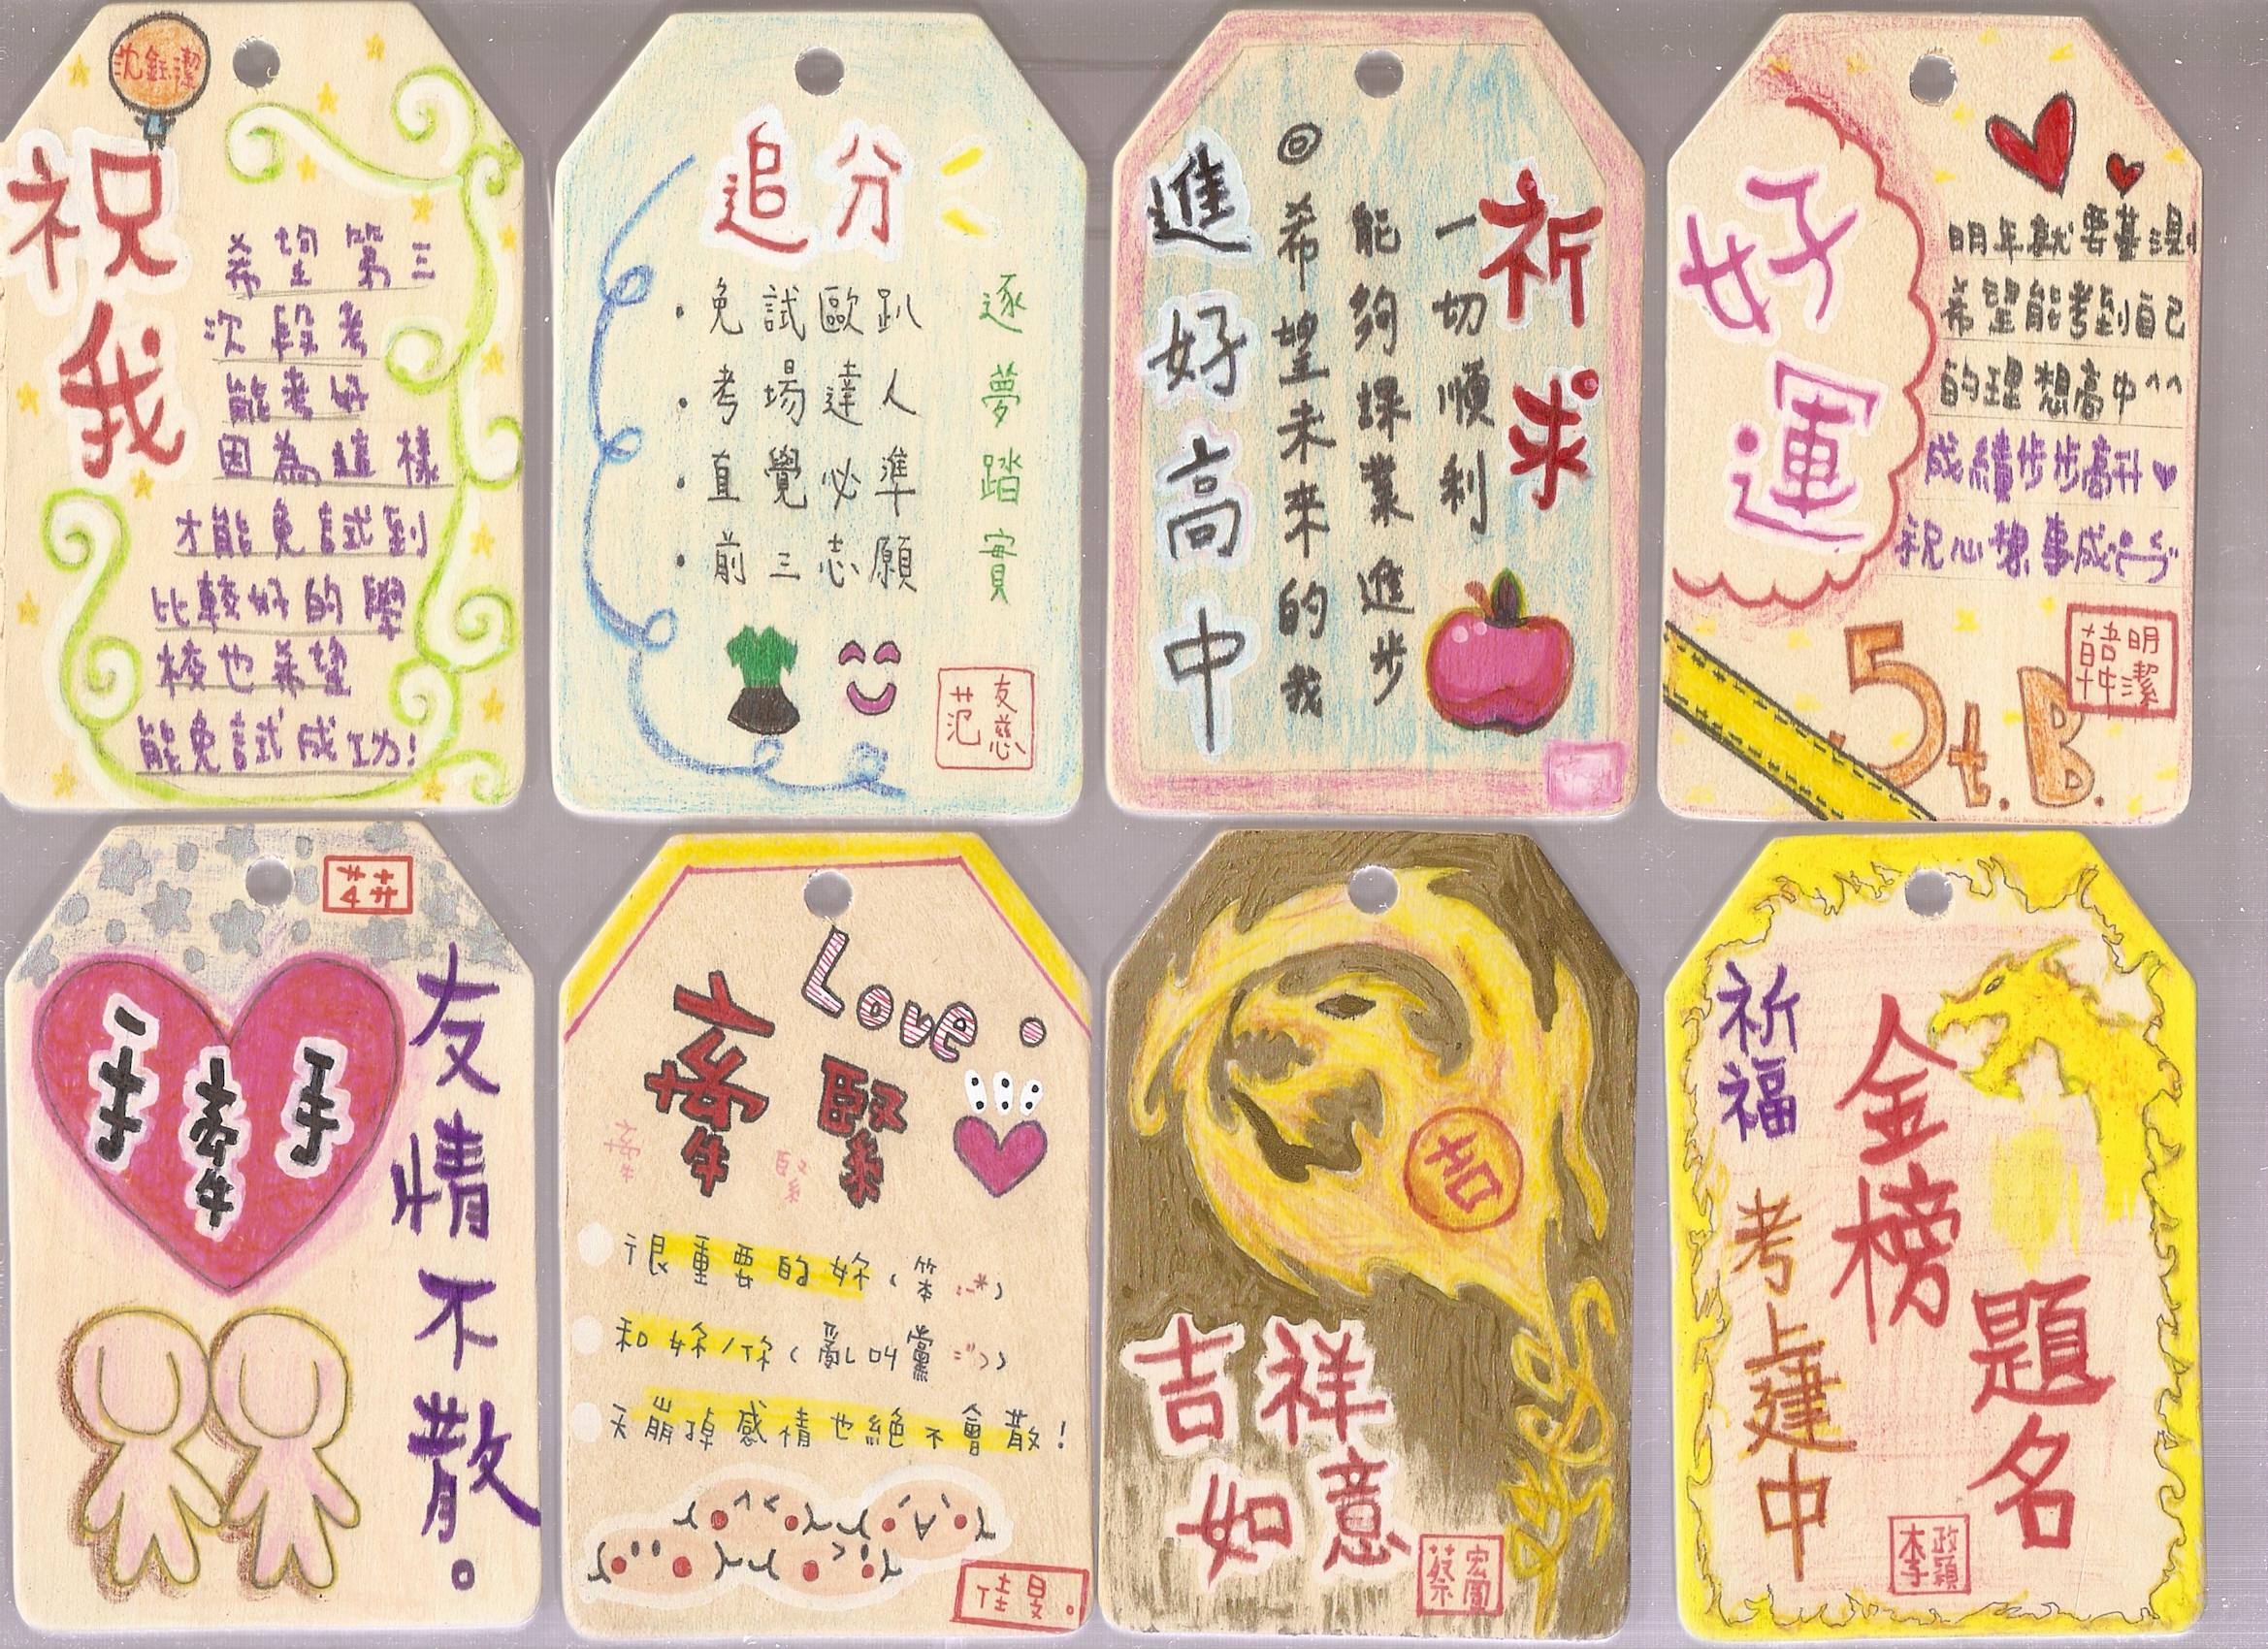 沈鈺潔
祝我
希望第三
次段考
能考好
因為這樣
才能免試到
比較好的學
校也希望
能免試成功!
追分
逐夢踏實
趴人準願
歐達必志
試場覺三
免考直前
范友慈
祈求
一切順利
能夠課業進步
◎希望未來的我
進好高中
好運
明年就要基測
希望能考到自己
的理想高中^^
成績步步高升♥
祝心想事成
韓明潔
.5t.B.
友情不散。
手牽手
Love
牽緊
牽
緊
很重要的妳(笨:-*)
和妳/你(亂叫黨:"))
天崩掉感情也絕不會散!
佳旻。
吉
吉祥
如意
蔡宏圖
祈福
金榜
題名
考上建中
李政穎